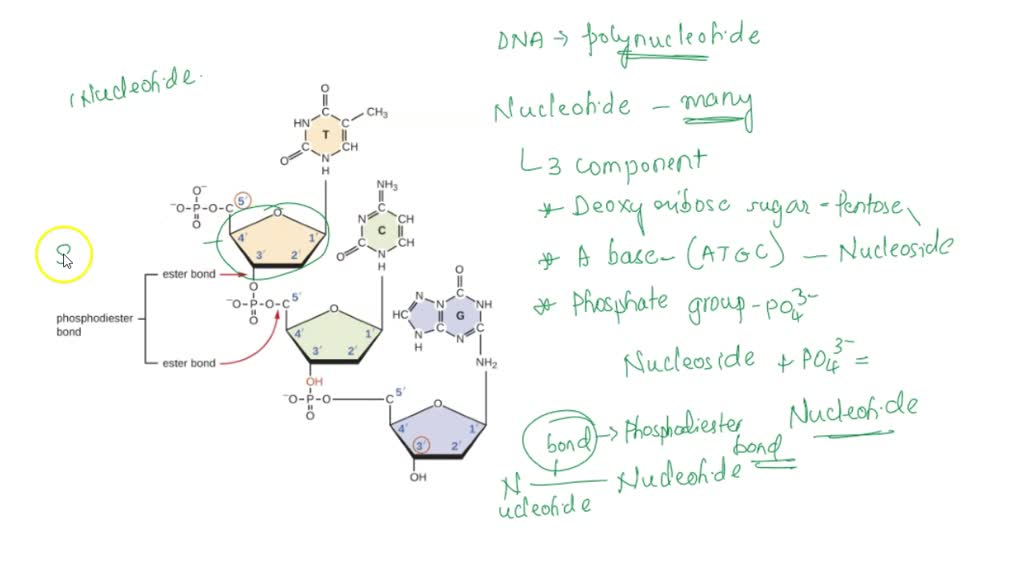 DNA → polynucleotide
(Nucleotide.
Nucleotide - many
3 component
* Deoxyribose sugar - Pentose
* A base - (ATGC) - Nucleoside
* Phosphate group - PO4 3-
Nucleoside + PO4 3- =
Nucleotide
bond → Phosphodiester
bond
N
ucleotide
Nucleotide
O
C
CH3
HN
C
C
T
O
C
CH
N
H
O-
-O-P-O-C
O
5'
O
4'
1'
3'
2'
NH3
C
N
CH
C
C
CH
O
N
H
ester bond
phosphodiester
bond
ester bond
O
-O-P-O-C
O
5'
O
4'
1'
3'
2'
O
C
N
N
NH
HC
G
N
C
N
C
H
NH2
OH
-O-P-O
O
C
5'
O
4'
1'
3'
2'
OH